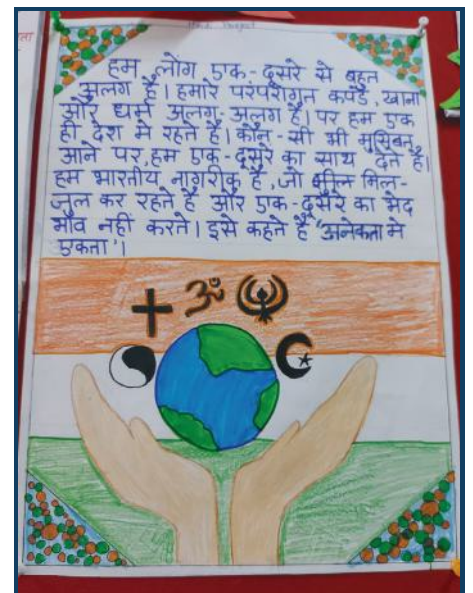 Hindi Project
हम लोग एक-दूसरे से बहुत
अलग है। हमारे परंपरागत कपडे, खाना
और धर्म अलग-अलग है। पर हम एक
ही देश मे रहते है। कौन-सी भी मुसिबत
आने पर, हम एक-दूसरे का साथ देते है।
हम भारतीय नागरीक है, जो मिल-
जुल कर रहते है और एक-दूसरे का भेद
भाव नही करते। इसे कहते है "अनेकता मे
एकता"।